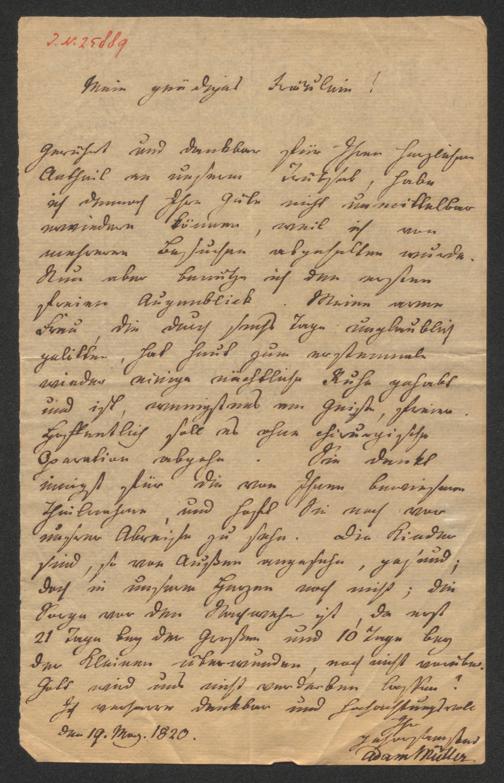 J.N. 25889
Mein gnädiges Fräulein!
Gerührt und dankbar für Ihren herzlichen
Antheil an unserm Trübsal, habe
ich dennoch Ihre Güte nicht unmittelbar
erwiedern können, weil ich von
mehreren Besuchen abgehalten wurde.
Nun aber benütze ich den ersten
freien Augenblick. Meine arme
Frau, die durch sechs Tage unglaublich
gelitten, hat heut zum erstenmale
wieder einige nächtliche Ruhe gehabt
und ist, wenigstens am Geiste, freier.
Hoffentlich soll es ohne chirurgische
Operation abgehn. Sie dankt
innigst für die von Ihnen bewiesene
Theilnahme, und hofft Sie noch vor
unsrer Abreise zu sehn. Die Kinder
sind, so von Außen angesehn, gesund;
doch in unserm Herzen noch nicht; die
Sorge vor den Nachwehn ist, da erst
21 Tage bey der Großen und 10 Tage bey
der Kleinen überwunden, noch nicht vorüber.
Gott wird uns nicht verderben lassen!
Ich verharre dankbar und hochachtungsvoll
Ihr
den 19. May. 1820.
gehorsamster
Adam Müller